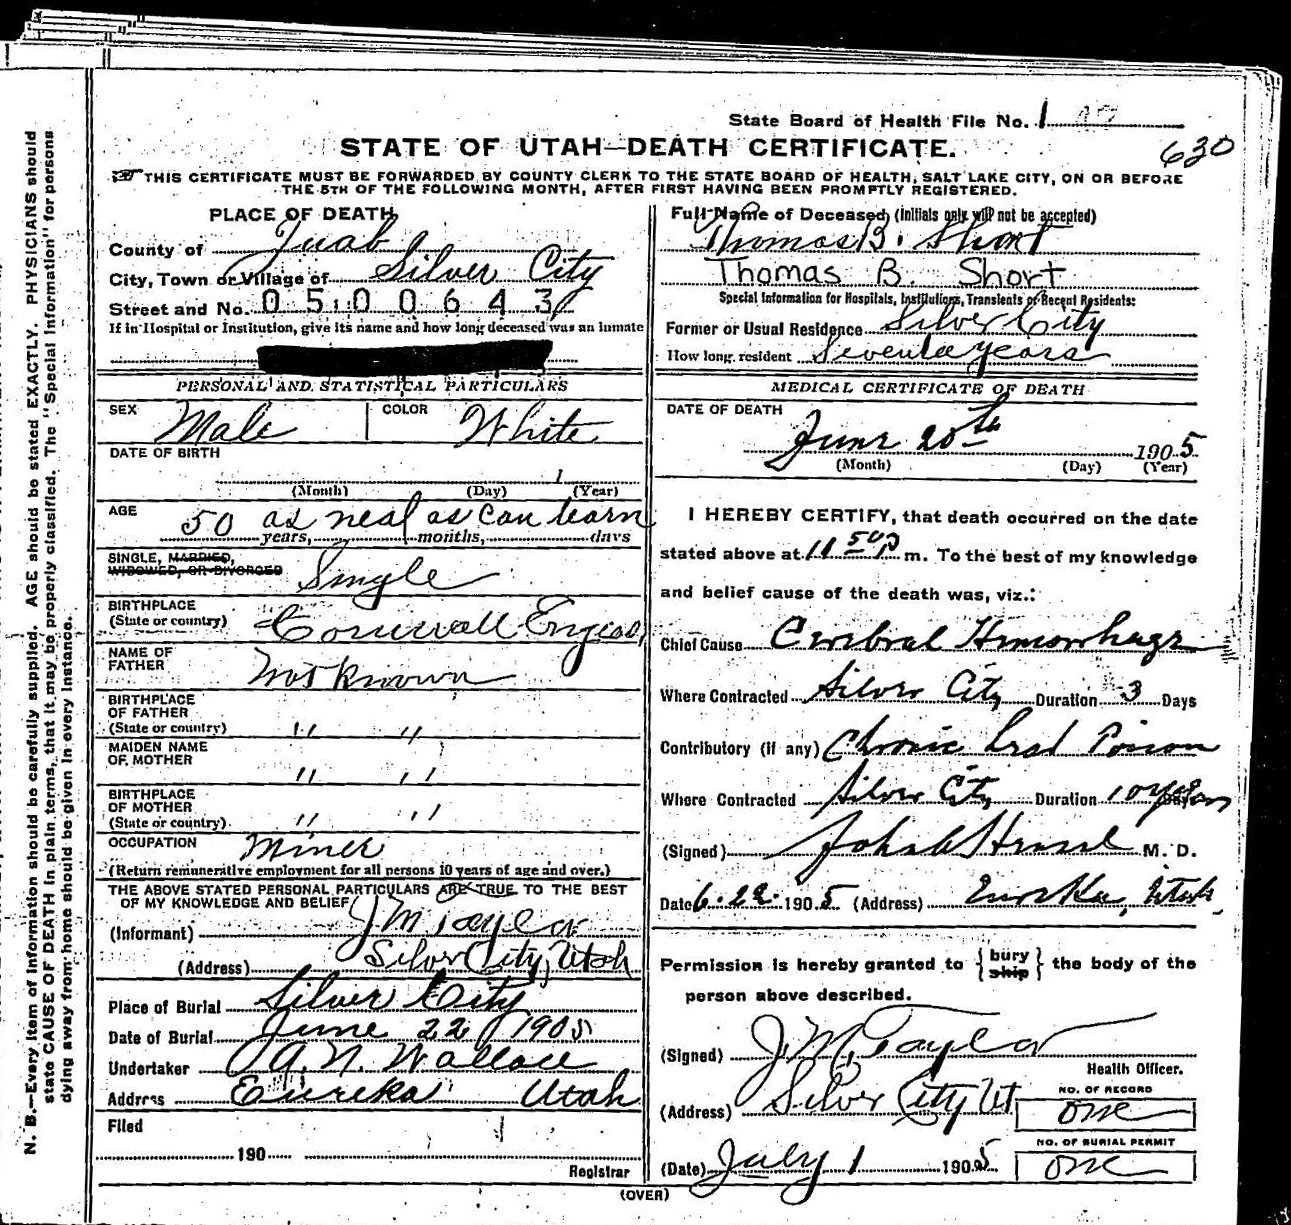 State Board of Health File No. 1
630
STATE OF UTAH—DEATH CERTIFICATE.
THIS CERTIFICATE MUST BE FORWARDED BY COUNTY CLERK TO THE STATE BOARD OF HEALTH, SALT LAKE CITY, ON OR BEFORE
THE 5TH OF THE FOLLOWING MONTH, AFTER FIRST HAVING BEEN PROMPTLY REGISTERED.
PLACE OF DEATH
County of Juab
City, Town or Village of Silver City
Street and No. 0500643
If in Hospital or Institution, give its name and how long deceased was an inmate
PERSONAL AND STATISTICAL PARTICULARS
SEX Male COLOR White
DATE OF BIRTH
1
(Month) (Day) (Year)
AGE 50 as near as can learn
years, months, days
SINGLE, MARRIED,
WIDOWED, OR DIVORCED Single
BIRTHPLACE
(State or country) Cornwall England
NAME OF
FATHER Not Known
BIRTHPLACE
OF FATHER
(State or country) " "
MAIDEN NAME
OF MOTHER " "
BIRTHPLACE
OF MOTHER
(State or country) " "
OCCUPATION Miner
(Return remunerative employment for all persons 10 years of age and over.)
THE ABOVE STATED PERSONAL PARTICULARS ARE TRUE TO THE BEST
OF MY KNOWLEDGE AND BELIEF
(Informant) J M Taylor
(Address) Silver City, Utah
Place of Burial Silver City
Date of Burial June 22 1905
Undertaker A. N. Wallace
Address Eureka Utah
Filed
190
Registrar
Full Name of Deceased (Initials only will not be accepted)
Thomas B. Short
Thomas B. Short
Special Information for Hospitals, Institutions, Transients or Recent Residents:
Former or Usual Residence Silver City
How long resident years
MEDICAL CERTIFICATE OF DEATH
DATE OF DEATH
June 20th 1905
(Month) (Day) (Year)
I HEREBY CERTIFY, that death occurred on the date
stated above at 11 50 P m. To the best of my knowledge
and belief cause of the death was, viz.:
Chief Cause Cerebral Hemorrhage
Where Contracted Silver City Duration 3 Days
Contributory (if any) Chronic Lead Poison
Where Contracted Silver City Duration 10 years
(Signed) M. D.
Date 6-22-1905 (Address) Eureka, Utah.
Permission is hereby granted to { bury
ship } the body of the
person above described.
(Signed) J. M. Taylor
Health Officer.
(Address) Silver City Ut
NO. OF RECORD
one
NO. OF BURIAL PERMIT
one
(Date) July 1 1905
(OVER)
N. B.—Every item of information should be carefully supplied. AGE should be stated EXACTLY. PHYSICIANS should
state CAUSE OF DEATH in plain terms, that it may be properly classified. The "Special Information" for persons
dying away from home should be given in every instance.